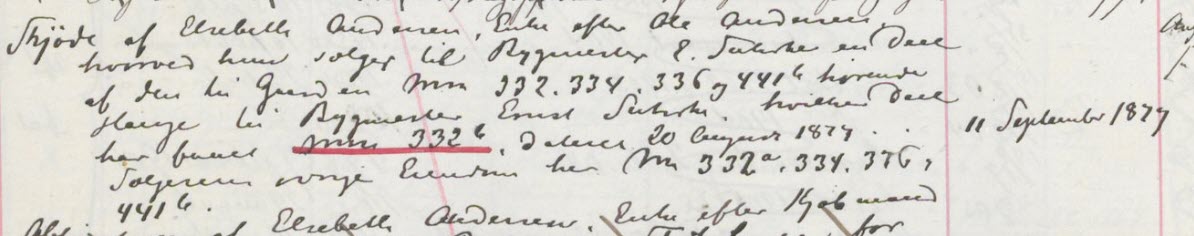 Skjöde af Elsebeth Andersen, Enke efter Ole Andersen,
hvorved hun solger til Bygmester E. en Deel
af den til Gaarden Mn 332. 334. 336 og 441b hörende
Hauge til Bygmester Ernst hvilken Deel
har faaet Mn 332b, dateret 20 August 1879.
Solgerens övrige Eiendom her Mn 332a. 334. 336,
441b.
11 September 1879
af Elsebeth Andersen, Enke efter Kjöbmand
for